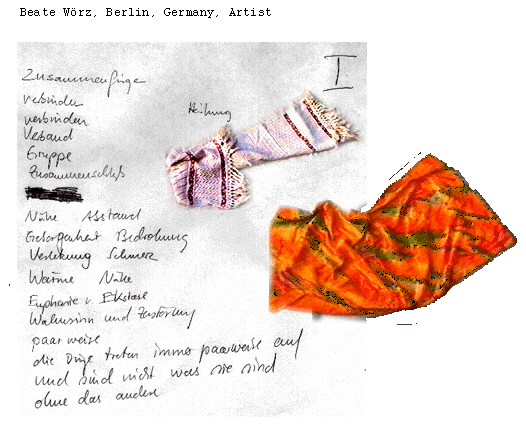 Beate Wörz, Berlin, Germany, Artist
I
Zusammenfüge
verbinden
Heilung
verbinden
Verband
Gruppe
Zusammenschluß
Nähe Abstand
Geborgenheit Bedrohung
Verletzung Schmerz
Wärme Nähe
Euphorie u. Ekstase
Wahnsinn und Zerstörung
paarweise
die Dinge treten immer paarweise auf
und sind nicht was sie sind
ohne das andere